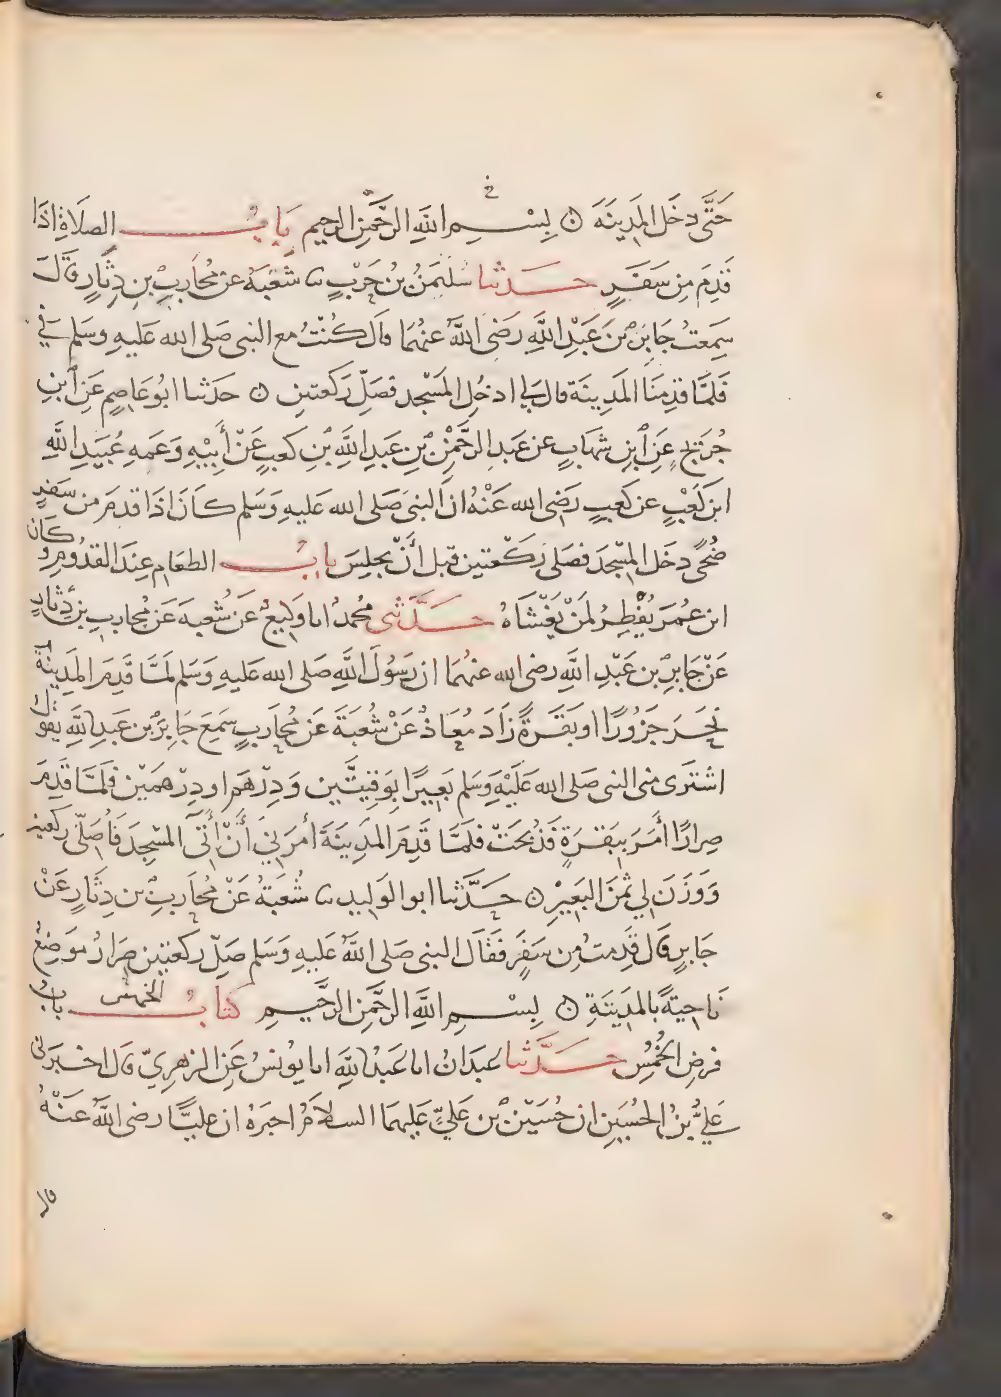 خ
حَتَّى دخَل المَدِينَةَ ۝ بِسْمِ اللهِ الرَّحْمَنِ الرحيم بَابُ الصلَاةِ اذَا
قَدِمَ مِن سَفَرٍ حَدَثنا سُلَيمَنُ بنُ حَرْبٍ ثنا شعْبَةُ عن مُحَارِبِ بنِ دِثَارٍ قَالَ
سَمِعتُ جَابرَ بنَ عَبْدِ اللَّهِ رَضىَ اللَّهُ عنهُمَا قال كُنْتُ مع النبى صَلى الله عَليهِ وسَلم فىِ
فَلمَّا قدِمنَا المَدِينَة قال لىِ ادخُلِ المَسْجد فصَلّ رَكعتين ۝ حَدثنا ابُو عَاصِمٍ عَنِ ابنِ
جُرَيْجٍ عَنِ ابنِ شِهَابٍ عن عَبد الرحَمْنِ بنِ عَبدِ اللَّهِ بْنِ كعبٍ عَنْ أَبِيْهِ وَعَمهِ عُبَيدِ اللَّهِ
ابن كَعْبٍ عن كَعبٍ رَضى الله عَنْهُ انَ النبىَ صَلى الله عَليهِ وَسَلم كَانَ اذَا قدمَ من سَفرٍ
ضُحًى دخَل المسْجدَ فصَلى رَكْعتين قبل أَنْ يجلِسَ بابُ الطعَامِ عِندَ القدُومِ وَكَان
ابن عُمَرَ يُفْطِرُ لمَنْ يَغْشَاهُ حَدَّثَنى مُحمدُ انا وَكيعُ عَن شُعبة عَن مُحاربِ بنِ دِثَارٍ
عَنْ جَابرِ بن عَبْدِ اللَّهِ رضى الله عنهُمَا ان رَسُولَ اللَّهِ صَلى الله عَليهِ وَسَلم لمَّا قَدِمَ المَدِينَةَ
نحَرَ جَزُورًا او بَقَرةً زَادَ مُعَاذُ عَنْ شُعبَةَ عَن مُحَارِبٍ سَمِعَ جَابرَ بن عَبدِ اللَّهِ يقُولُ
اشتَرى منى النبى صَلى الله عَلَيْهِ وَسَلم بَعيرًا بِوَقِيتَّين وَدِرْهَم او دِرْهمَيْن فَلمَّا قَدِمَ
صِرارًا أَمَرَ بِبَقرَةٍ فَذُبحَتْ فلمَّا قَدِمَ المَدِينَةَ أمَرَنِي أَنْ أُتِىَ المسْجِدَ فَأُصَلّىَ ركعتين
وَوَزَنَ لِي ثمنَ البَعِيْرِ ۝ حَدَّثَنا ابو الوَليد ثنا شُعبَةُ عَنْ مُحَارِبِ بن دِثَارٍ عَنْ
جَابرٍ قَال قَدِمتُ مِن سَفَرٍ فقَالَ النبى صَلى اللَّهُ عَليهِ وَسَلم صَلّ ركعَتين صِرَارُ موَضِعُ
نَاحِيَةً بالمَدينَةِ ۝ بِسْمِ اللَّهِ الرَّحْمَنِ الرَّحِيمِ كتَابُ الخمس بابُ
فرضِ الخُمُسِ حَدَّثَنا عَبدَانُ انا عَبدُ اللَّهِ انا يونسُ عَنِ الزهرِيّ قَال اخبَرَنى
عَلىُّ بنُ الحُسَينِ ان حُسَيْنَ بن عَليٍّ عَليهمَا السلامُ اخبرَهُ ان عَليًّا رضى اللَّهُ عَنْهُ
قال